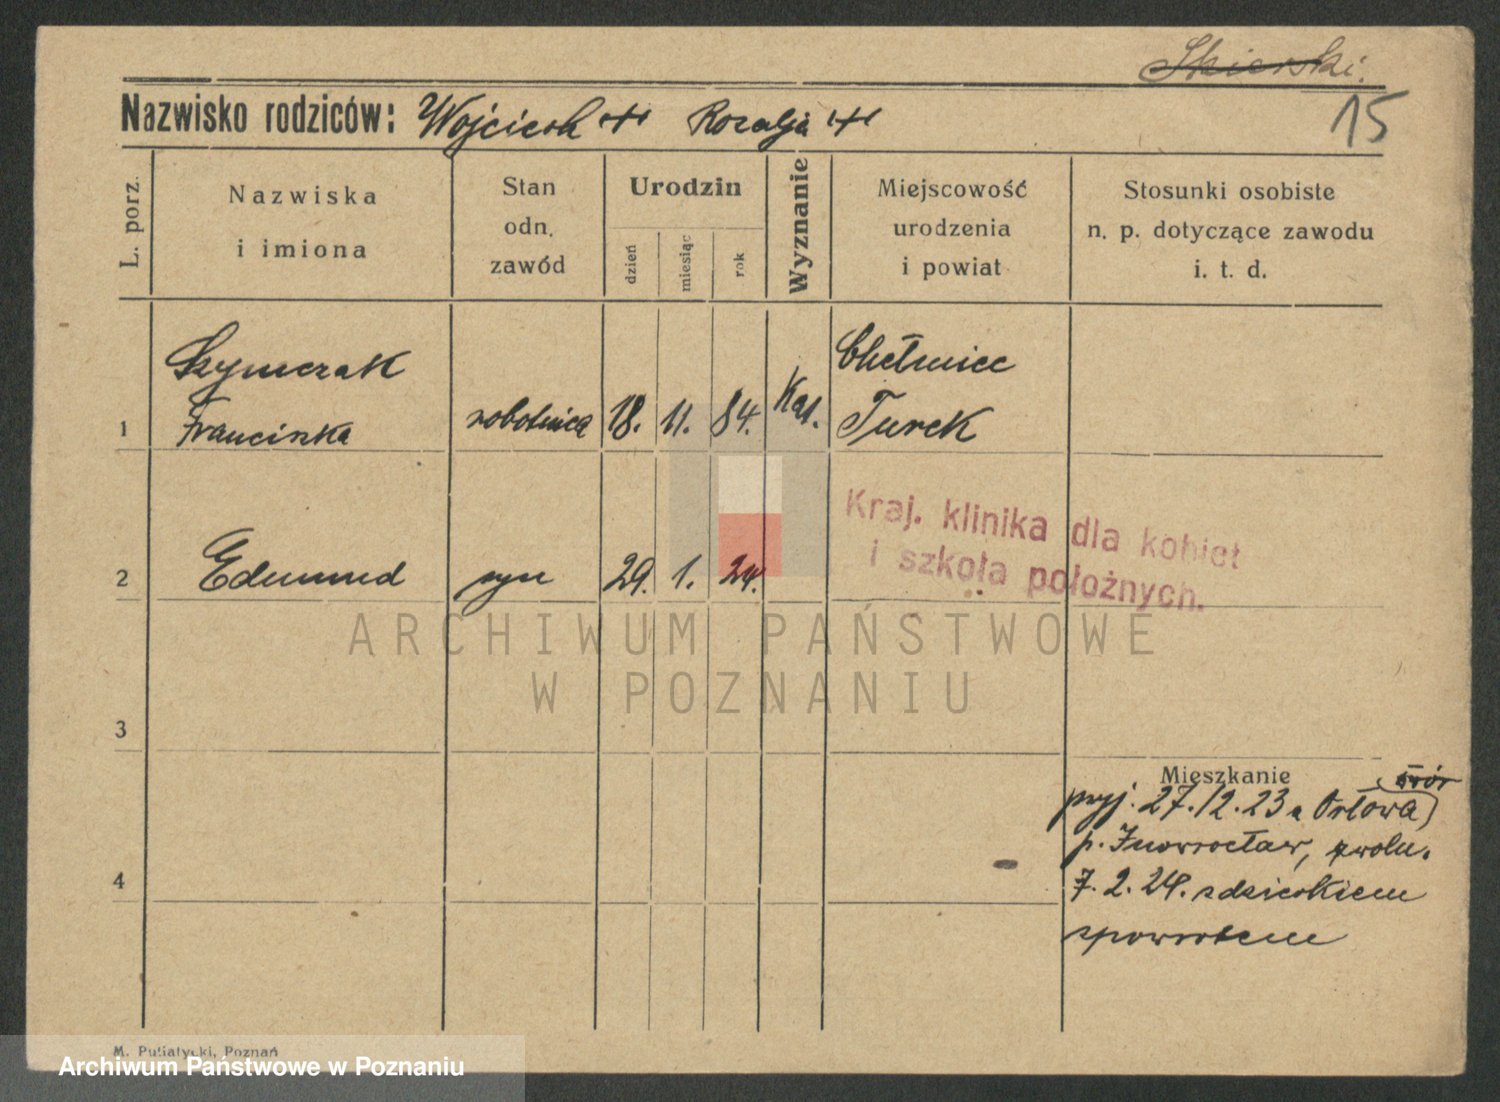 Skierski.
15
Nazwisko rodziców: Wojciech ++ Rozalja ++
L. porz.
Nazwiska
i imiona
Stan
odn.
zawód
Urodzin
dzień
miesiąc
rok
Wyznanie
Miejscowość
urodzenia
i powiat
Stosunki osobiste
n. p. dotyczące zawodu
i. t. d.
1
Szymczak
Franciszka
robotnica
18. 11. 84.
Kat.
Chełmice
Turek
2
Edmund
syn
29. 1. 24.
Kraj. klinika dla kobiet
i szkoła położnych.
ARCHIWUM PAŃSTWOWE
W POZNANIU
3
Mieszkanie
przyj. 27.12.23 z Orłowa)
p. Inowrocław, zwoln.
4
7. 2. 24. z dzieckiem
spowrotem
M. Putiatycki, Poznań
Archiwum Państwowe w Poznaniu